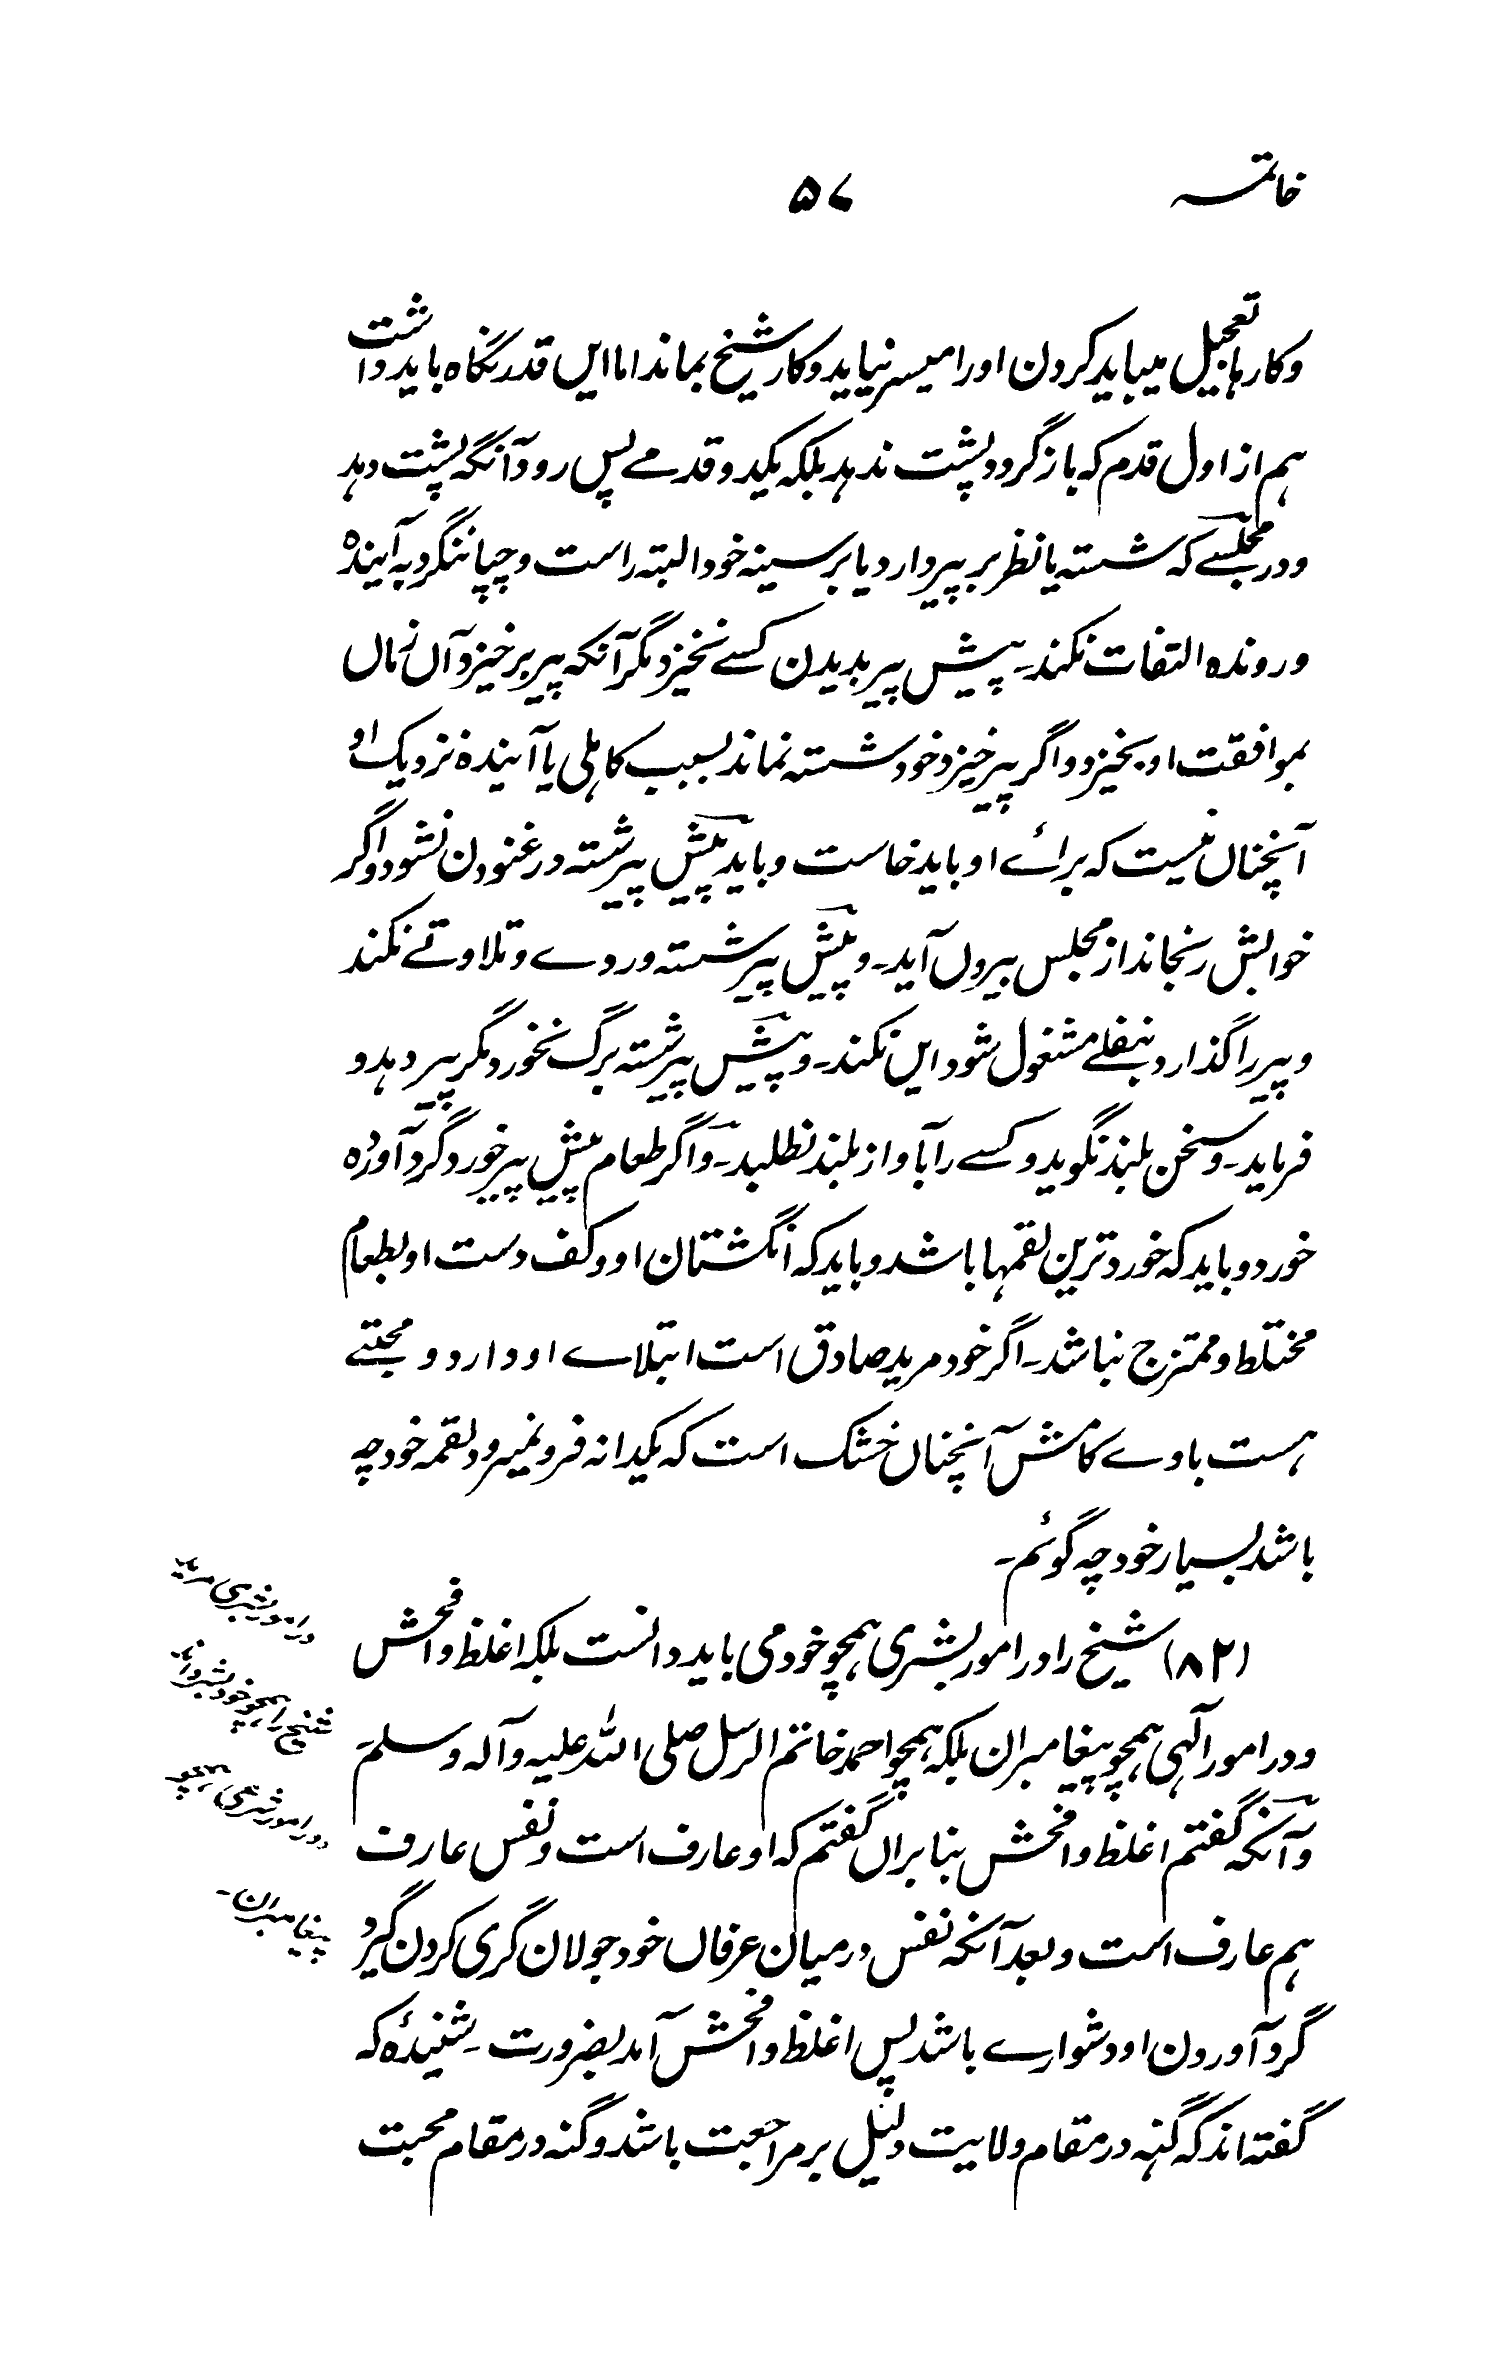 خاتمہ
۵۷
وکارها تعجیل میباید کردن اورا میسر نیاید وکار شیخ بماند اما ایں قدر نگاه باید داشت
ہم از اول قدم که باز گردد پشت ندہد بلکه یکدو قدمے پس رود آنگه پشت دہد
ودر مجلسے که شسته یا نظر بر پیر دارد یا بر سینه خود البته راست وچپا ننگرد به آینده
ورونده التفات نکند۔ پیش پیر بدیدن کسے نخیزد مگر آنکه پیر برخیزد آں زماں
بموافقت او بخیزد واگر پیر خیزد خود شسته نماند بسبب کاہلی یا آینده نزدیک او
آنچناں نیست که برائے او باید خاست وباید پیش پیر شسته در غنودن نشود واگر
خوابش رنجاند از مجلس بیروں آید۔ وپیش پیر شسته وردے وتلاوتے نکند
وپیر را گذارد بنفلے مشغول شود ایں نکند۔ وپیش پیر شسته برگ نخورد مگر پیر دہد و
فرماید۔ وسخن بلند نگوید وکسے را بآواز بلند نطلبد۔ واگر طعام پیش پیر خورد گرد آورده
خورد وباید که خورد ترین لقمہا باشد وباید که انگشتان او وکف دست او بطعام
مختلط وممتزج نباشد۔ اگر خود مرید صادق است ابتلاے او دارد و محبتے
ہست باوے کامش آنچناں خشک است که یکدانه فرو نمیرود لقمه خود چه
باشد بسیار خود چه گوئم۔
(۸۲) شیخ را در امور بشری ہمچو خود می باید دانست بلکه اغلظ وافحش
ودر امور الٰہی ہمچو پیغامبران بلکه ہمچو احمد خاتم الرسل صلی اللہ علیه وآله وسلم
وآنکه گفتم اغلظ وافحش بنا براں گفتم که او عارف است ونفس عارف
ہم عارف است وبعد آنکه نفس درمیان عرفاں خود جولان گری کردن گیرد
گرد آوردن او دشوارے باشد پس اغلظ وافحش آمد بضرورت۔ شنیدۂ که
گفته اند که گنہ در مقام ولایت دلیل بر مراجعت باشد وگنه در مقام محبت
در امور بشری مرید
شیخ را ہمچو خود بشر داند
ودر امور شرعی ہمچو
پیغامبران۔